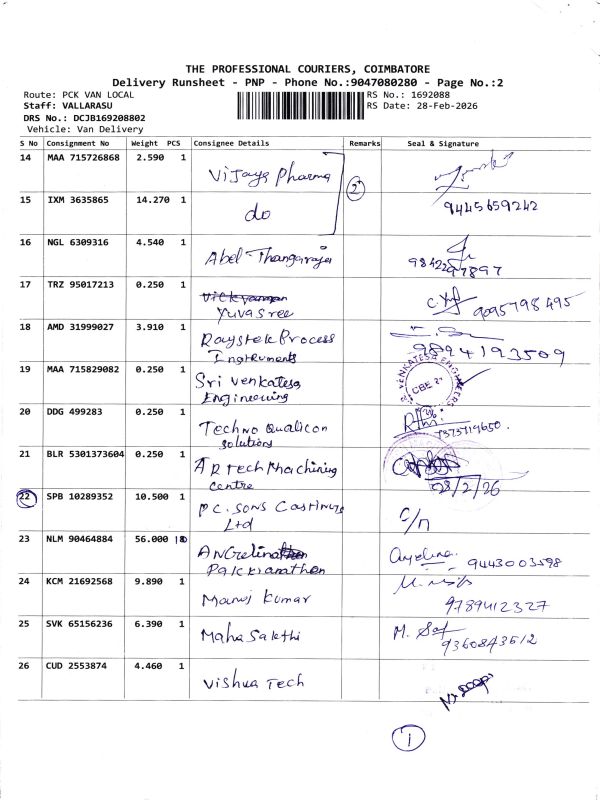 THE PROFESSIONAL COURIERS, COIMBATORE
Delivery Runsheet - PNP - Phone No.:9047080280 - Page No.:2
Route: PCK VAN LOCAL
RS No.: 1692088
Staff: VALLARASU
RS Date: 28-Feb-2026
DRS No.: DCJB169208802
Vehicle: Van Delivery
S No Consignment No Weight PCS Consignee Details Remarks Seal & Signature
14 MAA 715726868 2.590 1 Vijaya Pharma 2
15 IXM 3635865 14.270 1 do 9445659242
16 NGL 6309316 4.540 1 Abel Thangaraja
17 TRZ 95017213 0.250 1 Yuvasree 9095798495
18 AMD 31999027 3.910 1 Raystek Process
Instruments 9894193509
19 MAA 715829082 0.250 1 Sri Venkatesa
Engineering VENKATESA ENGINEERS CBE
20 DDG 499283 0.250 1 Techno Qualicon
Solutions
21 BLR 5301373604 0.250 1 AR Tech Machining
Centre 28/2/26
22 SPB 10289352 10.500 1 P.C. Sons Castings
Ltd C/n
23 NLM 90464884 56.000 Angelina
Pakkianathan 9443003598
24 KCM 21692568 9.890 1 Manoj Kumar 9789412327
25 SVK 65156236 6.390 1 Maha Sakthi 9360843612
26 CUD 2553874 4.460 1 Vishua Tech
1